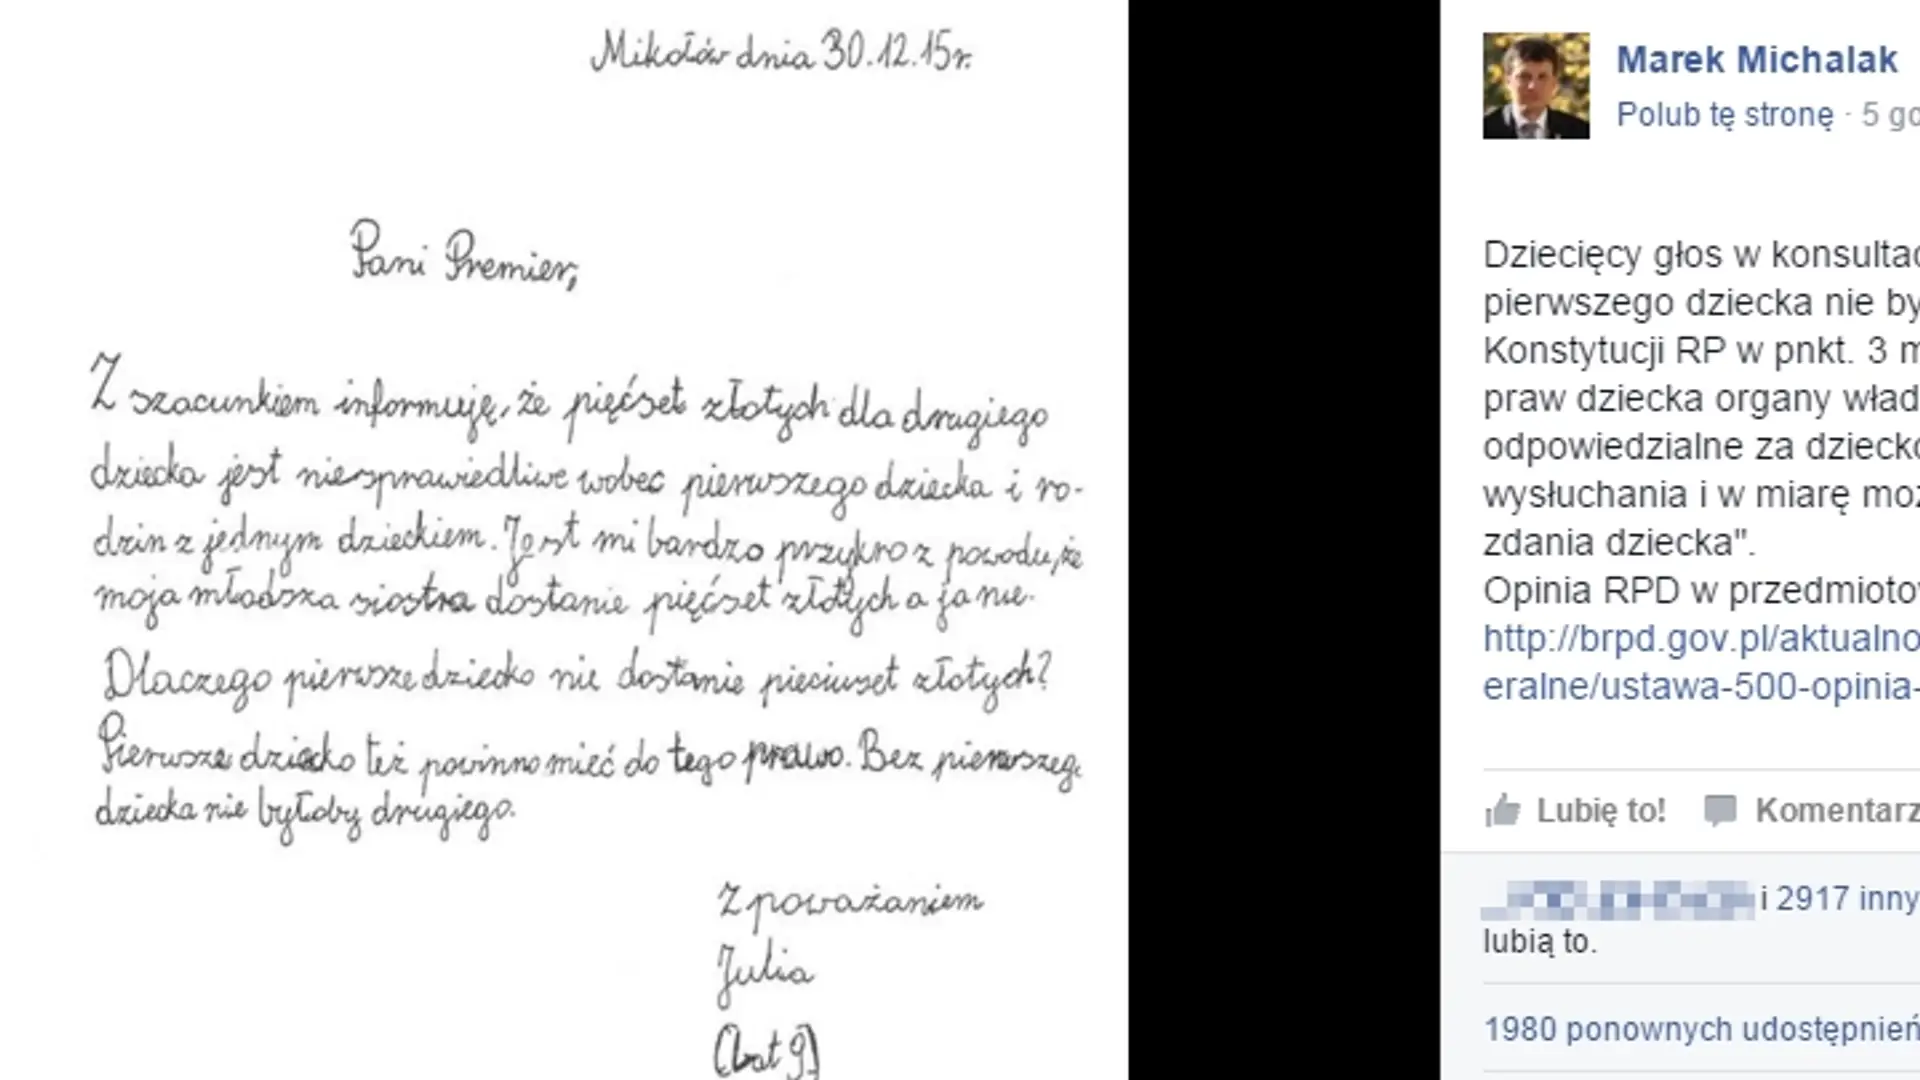 Mikołów dnia 30.12.15r.
Pani Premier,
Z szacunkiem informuję, że pięćset złotych dla drugiego
dziecka jest niesprawiedliwe wobec pierwszego dziecka i ro-
dzin z jednym dzieckiem. Jest mi bardzo przykro z powodu, że
moja młodsza siostra dostanie pięćset złotych a ja nie.
Dlaczego pierwsze dziecko nie dostanie pieciuset złotych?
Pierwsze dziecko też powinno mieć do tego prawo. Bez pierwszeg
dziecka nie byłoby drugiego.
Z poważaniem
Julia
(lat 9)
Marek Michalak
Polub tę stronę · 5 go
Dziecięcy głos w konsultac
pierwszego dziecka nie by
Konstytucji RP w pnkt. 3 m
praw dziecka organy wład
odpowiedzialne za dziecko
wysłuchania i w miarę moż
zdania dziecka".
Opinia RPD w przedmiotow
http://brpd.gov.pl/aktualno
eralne/ustawa-500-opinia-
Lubię to! Komentarz
i 2917 inny
lubią to.
1980 ponownych udostępnień